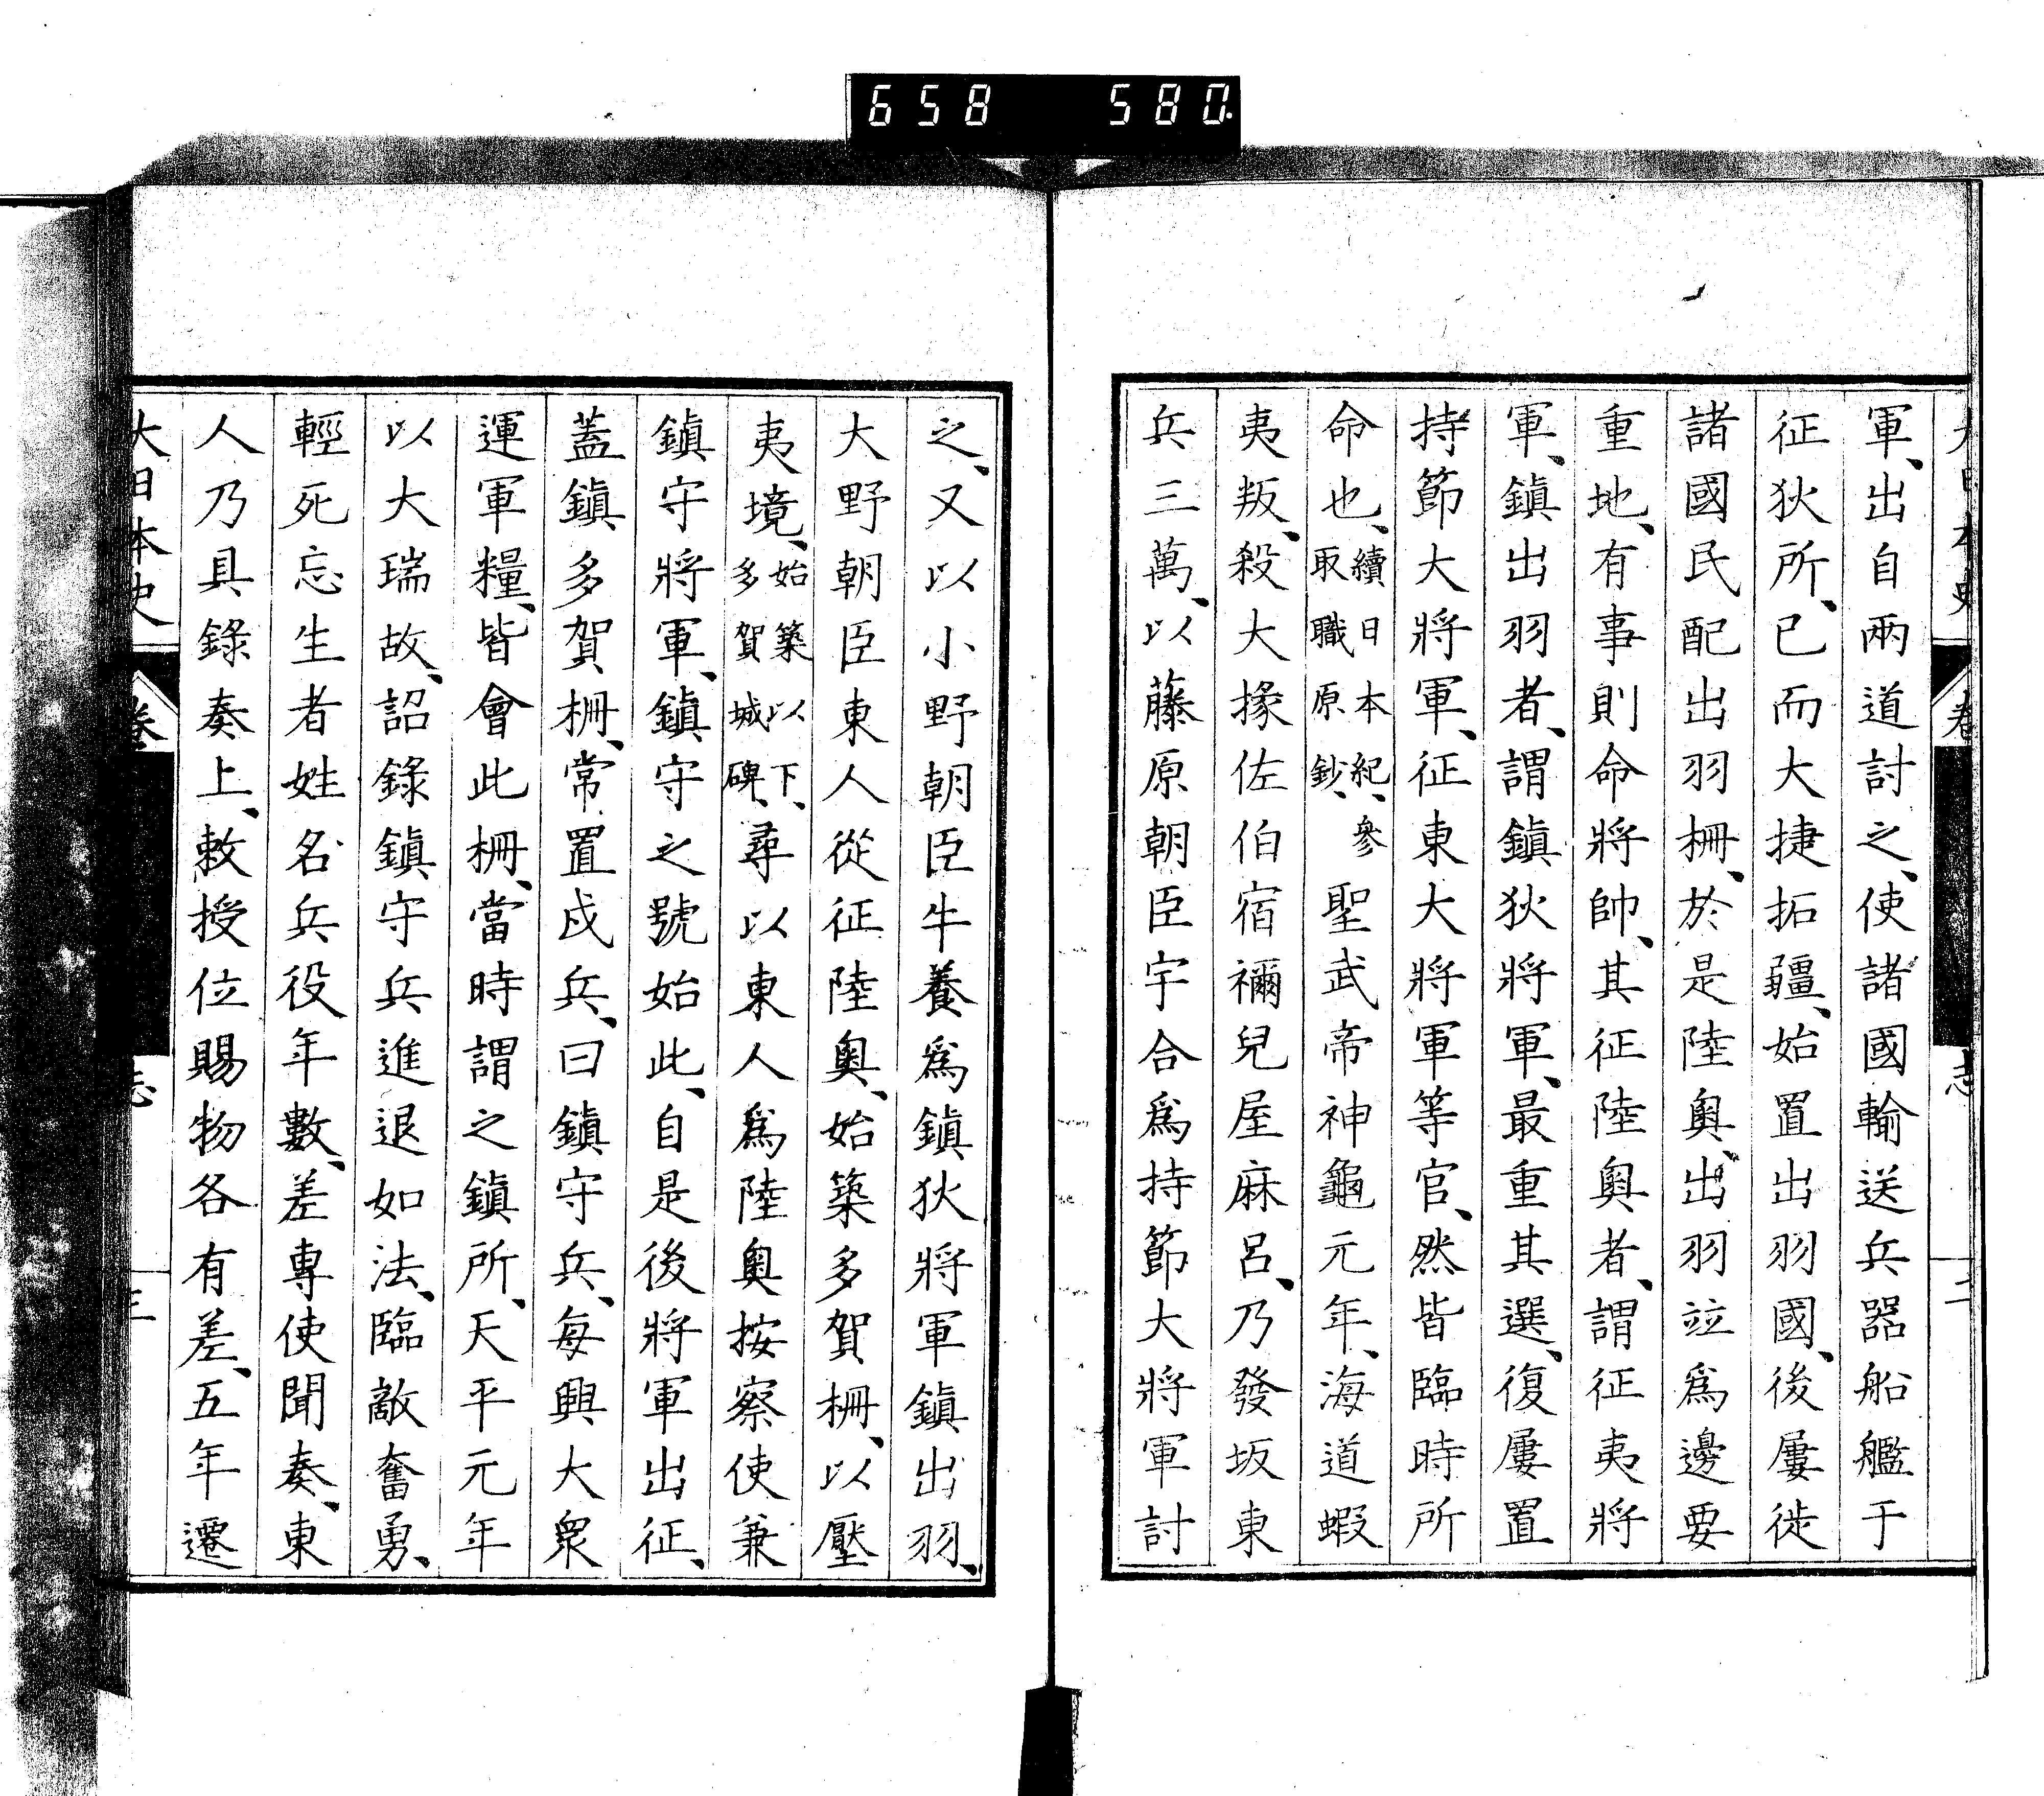 658 580
軍、出自兩道討之、使諸國輸送兵器船艦于
征狄所、已而大捷拓疆、始置出羽國、後屢徙
諸國民配出羽柵、於是陸奧、出羽竝爲邊要
重地、有事則命將帥、其征陸奧者、謂征夷將
軍、鎮出羽者、謂鎮狄將軍、最重其選、復屢置
持節大將軍、征東大將軍等官、然皆臨時所
命也、續日本紀、參取職原鈔、聖武帝神龜元年、海道蝦
夷叛、殺大掾佐伯宿禰兒屋麻呂、乃發坂東
兵三萬、以藤原朝臣宇合爲持節大將軍討
之、又以小野朝臣牛養爲鎮狄將軍鎮出羽、
大野朝臣東人從征陸奧、始築多賀柵、以壓
夷境、始築以下、多賀城碑、尋以東人爲陸奧按察使兼
鎮守將軍、鎮守之號始此、自是後將軍出征、
蓋鎮多賀柵、常置戍兵、曰鎮守兵、每興大衆
運軍糧、皆會此柵、當時謂之鎮所、天平元年
以大瑞故、詔錄鎮守兵進退如法、臨敵奮勇、
輕死忘生者姓名兵役年數、差專使聞奏、東
人乃具錄奏上、敕授位賜物各有差、五年遷
大日本史 卷 志 三